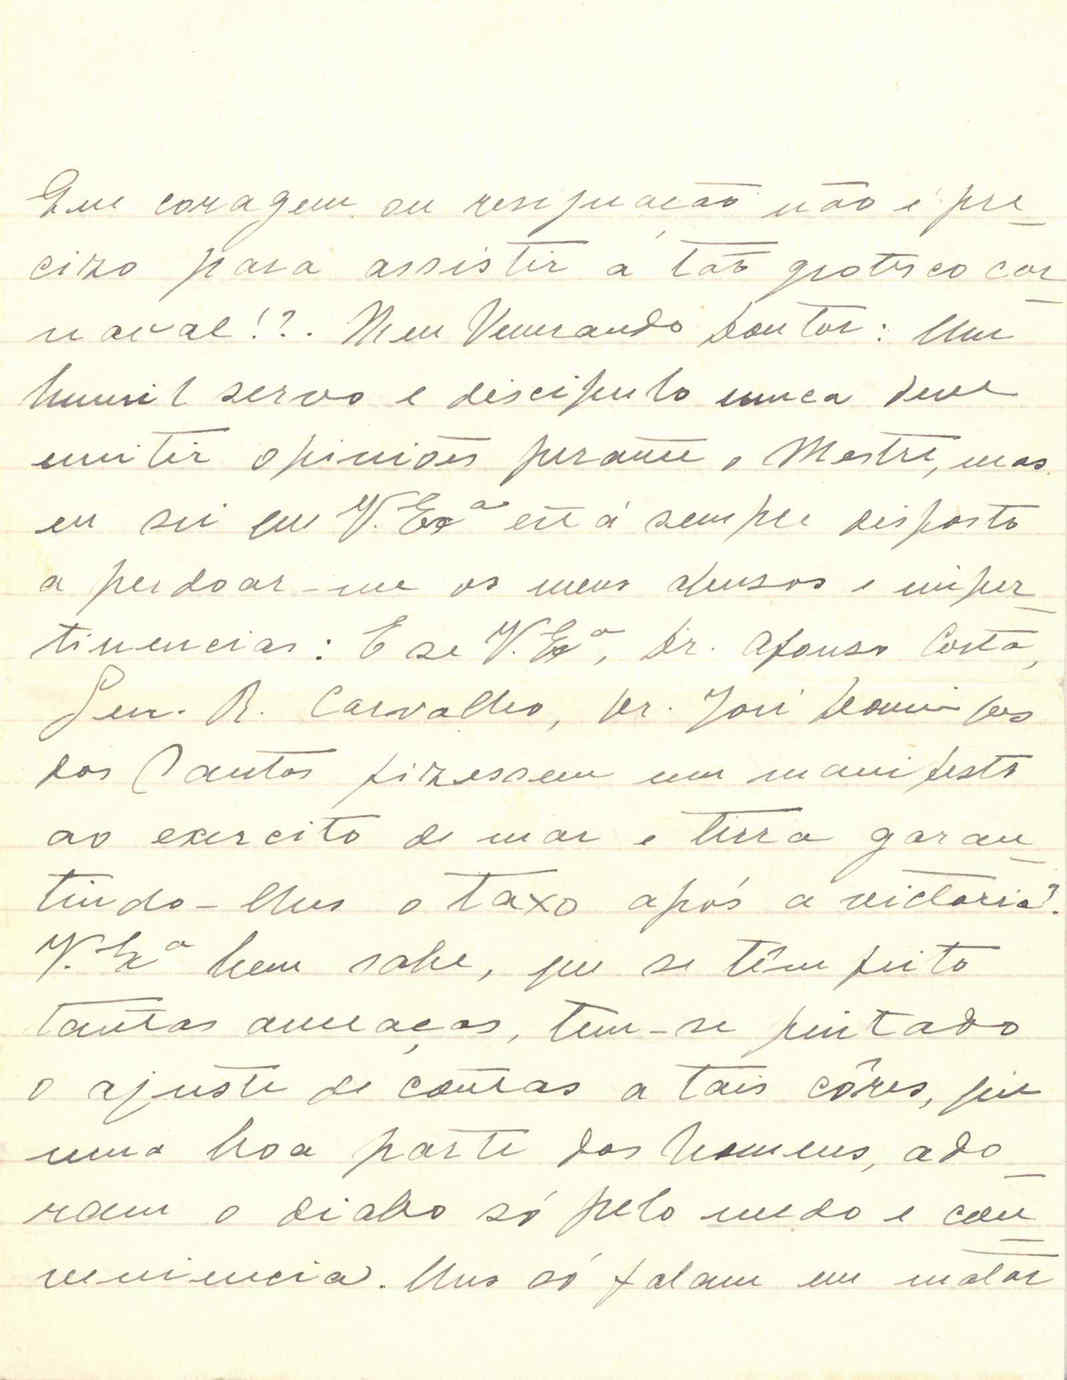 Que coragem ou resignação não é pre_
cizo para assistir á tão grotesco car_
naval!?. Meu Venerando Doutor: Um
humil servo e discipulo nunca deve
emitir opiniões perante o Mestre, mas
eu sei que V. Exª está sempre disposto
a perdoar-me os meus abusos e imper_
tinencias: E se V. Exª, Dr. Afonso Costa,
Gen. R. Carvalho, Dr. José Domingos
dos Santos fizessem um manifesto
ao exercito de mar e terra garan_
tindo-lhes o taxo após a victoria?.
V. Exª bem sabe, que se têm feito
tantas ameaças, tem-se pintado
o ajuste de contas a tais côres, que
uma boa parte dos homens, ado_
ram o diabo só pelo medo e con_
veniencia. Uns só falam em matar